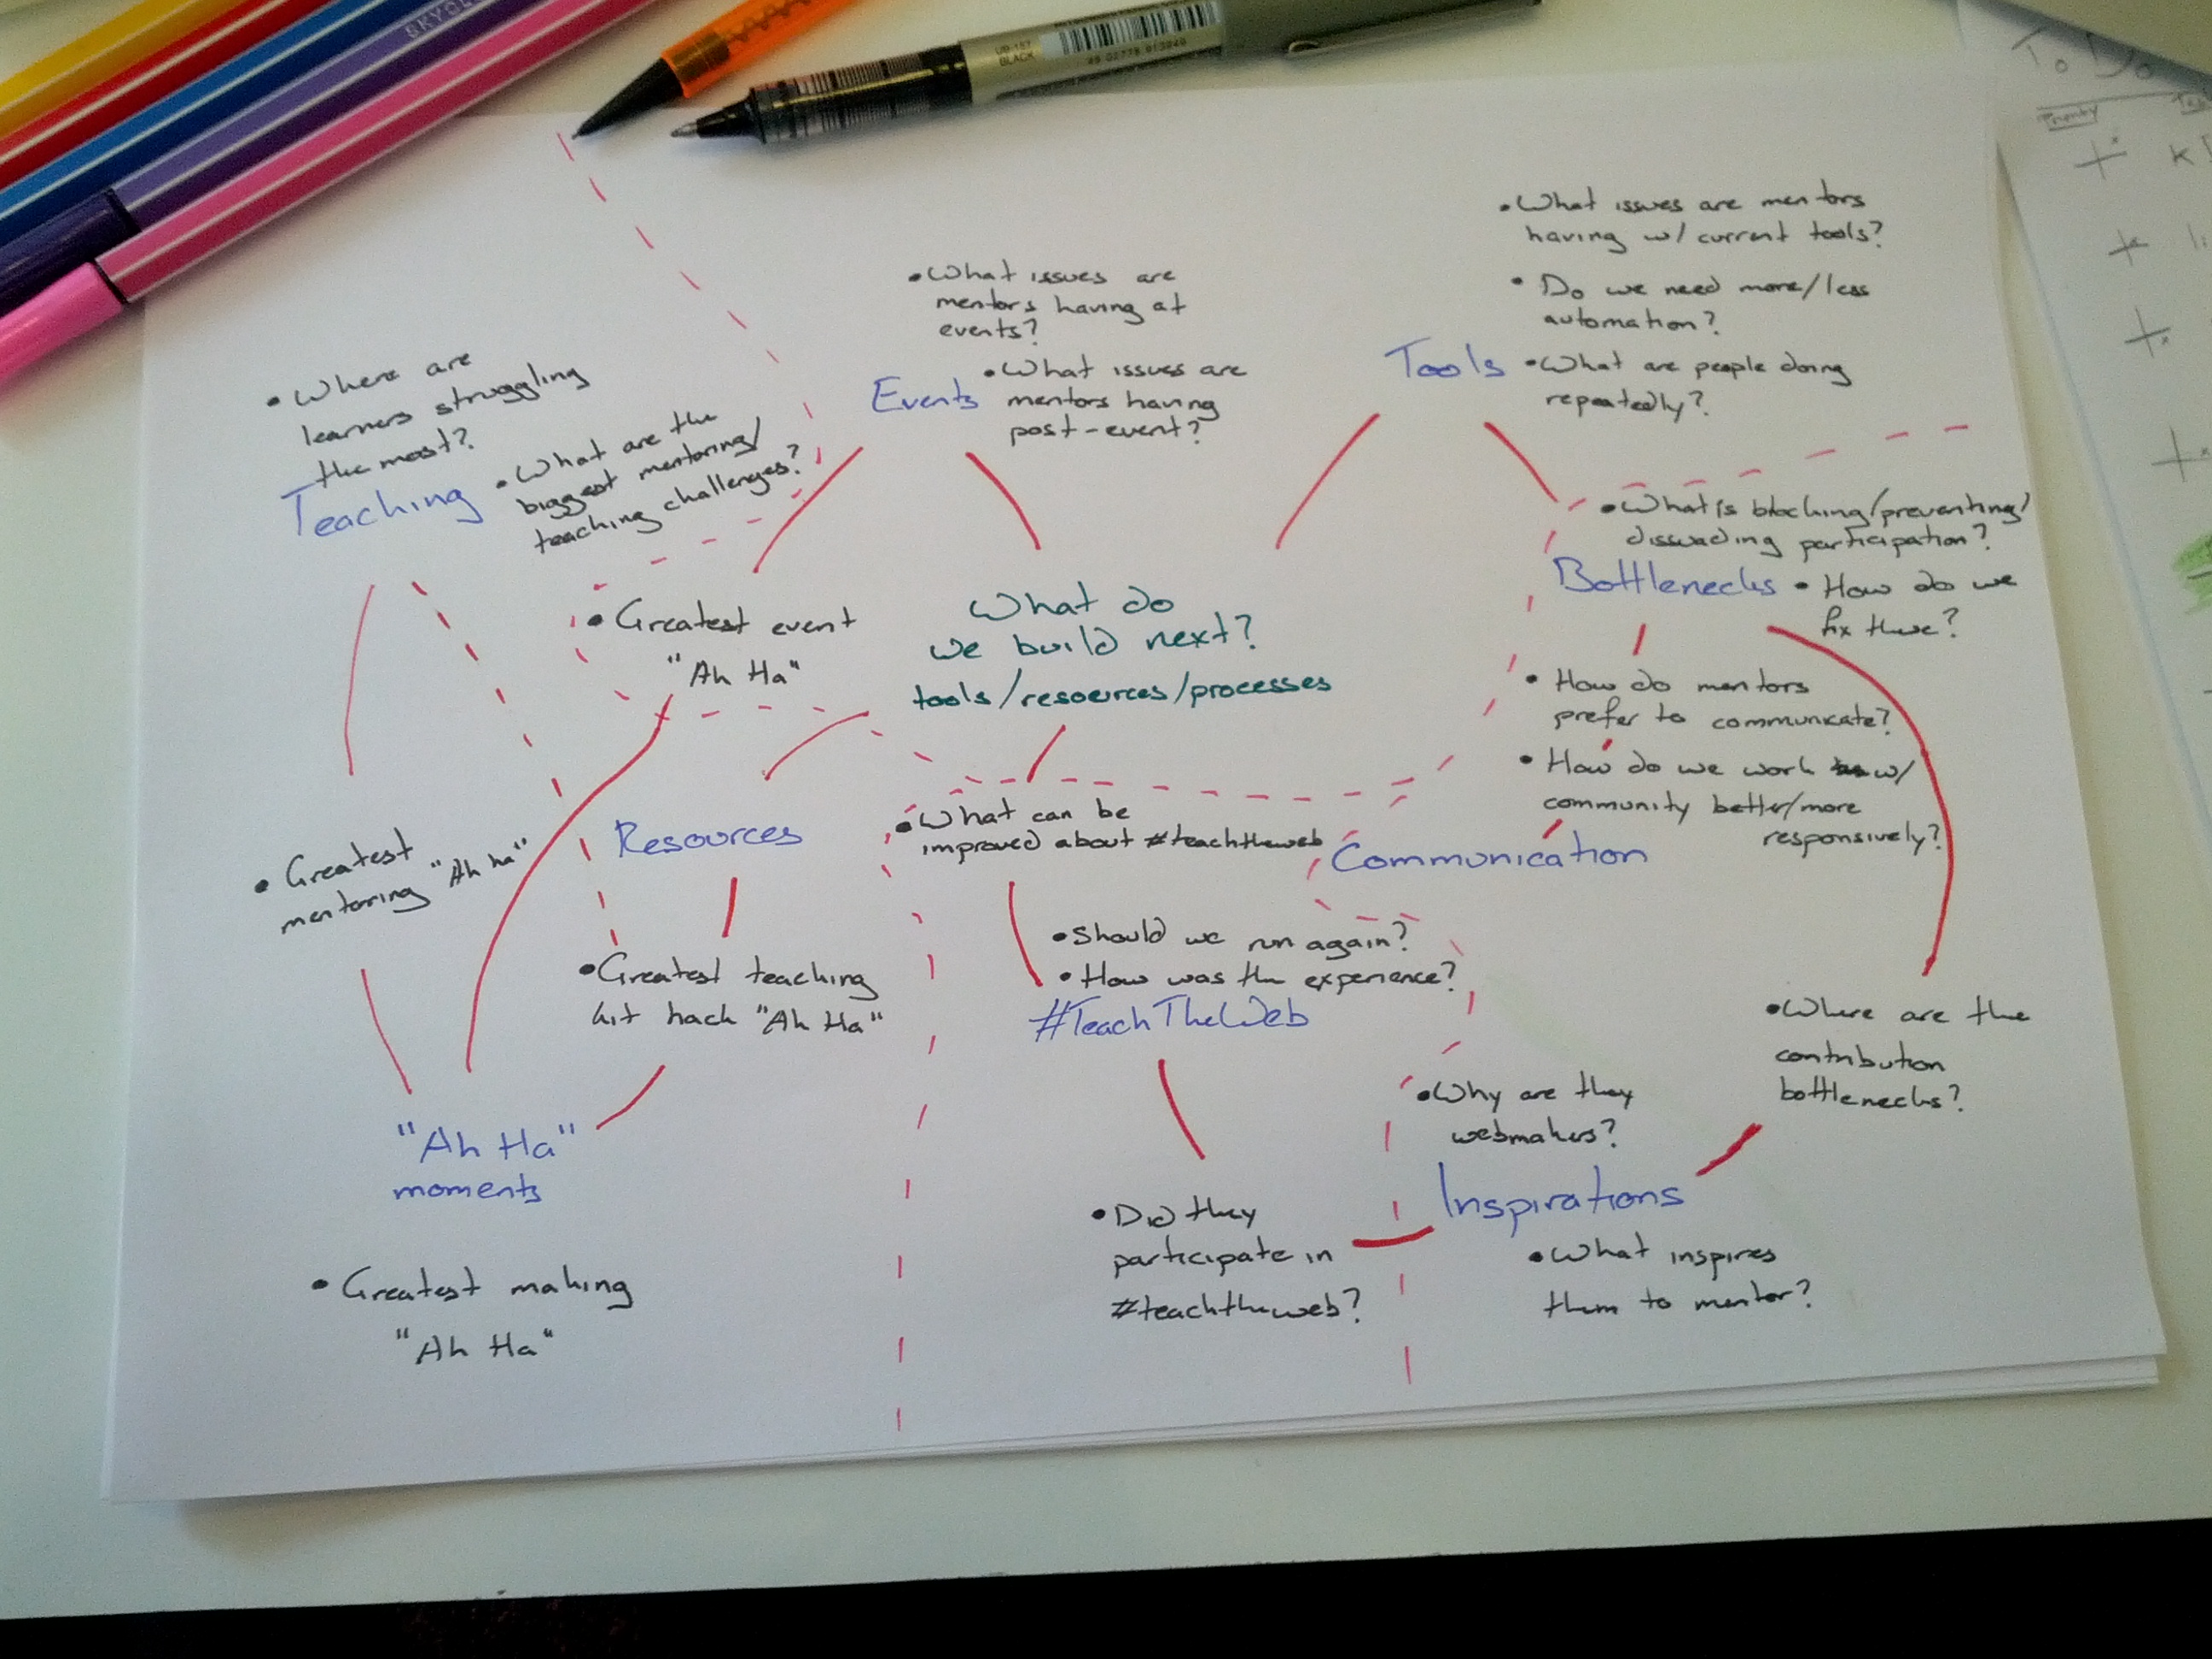 SKYGL
UB-157
BLACK
To Do
• What issues are mentors
having w/ current tools?
• Do we need more/less
automation?
Tools
• What are people doing
repeatedly?
• What issues are
mentors having at
events?
Events
• What issues are
mentors having
post-event?
• Where are
learners struggling
the most?
Teaching
• What are the
biggest mentoring/
teaching challenges?
• What is blocking/preventing/
disswading participation?
Bottlenecks
• How do we
fix these?
• Greatest event
"Ah Ha"
What do
we build next?
tools/resources/processes
• How do mentors
prefer to communicate?
• How do we work w/
community better/more
responsively?
Communication
Resources
• What can be
improved about #teachtheweb
• Greatest
mentoring "Ah ha"
• Greatest teaching
kit hack "Ah Ha"
• Should we run again?
• How was the experience?
#TeachTheWeb
• Where are the
contribution
bottlenecks?
• Why are they
webmakers?
Inspirations
• What inspires
them to mentor?
"Ah Ha"
moments
• Did they
participate in
#teachtheweb?
• Greatest making
"Ah Ha"